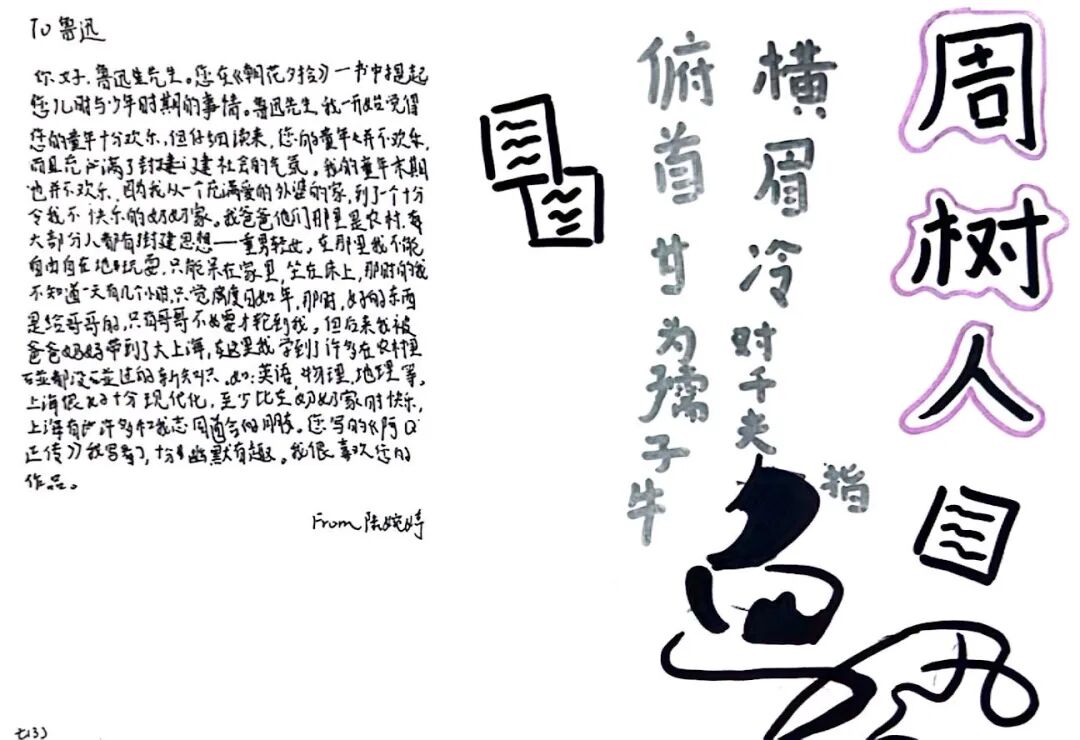 To 鲁迅
你好,鲁迅先生。您在《朝花夕拾》一书中提起
您儿时与少年时期的事情。鲁迅先生我一开始觉得
您的童年十分欢乐,但仔细读来,您的童年并不欢乐,
而且充满了封建社会的气氛。我的童年末期
也并不欢乐,因为我从一个充满爱的外婆的家,到了一个十分
令我不快乐的奶奶家。我爸爸他们那里是农村,有
大部分人都有封建思想——重男轻女,在那里我不能
自由自在地玩耍,只能呆在家里,坐在床上,那时的我
不知道一天有几个小时,只觉度日如年,那时,好的东西
是给哥哥的,只有哥哥不要才轮到我。但后来我被
爸爸妈妈带到了大上海,在这里我学到了许多在农村里
碰都没碰过的新知识,如:英语,物理,地理等。
上海很十分现代化,至少比在奶奶家时快乐,
上海有许多和我志同道合的朋友。您写的《阿Q
正传》我写看了,十分幽默有趣。我很喜欢您的
作品。
From 陆婉婷
七(3)
周树人
横眉冷对千夫指
俯首甘为孺子牛